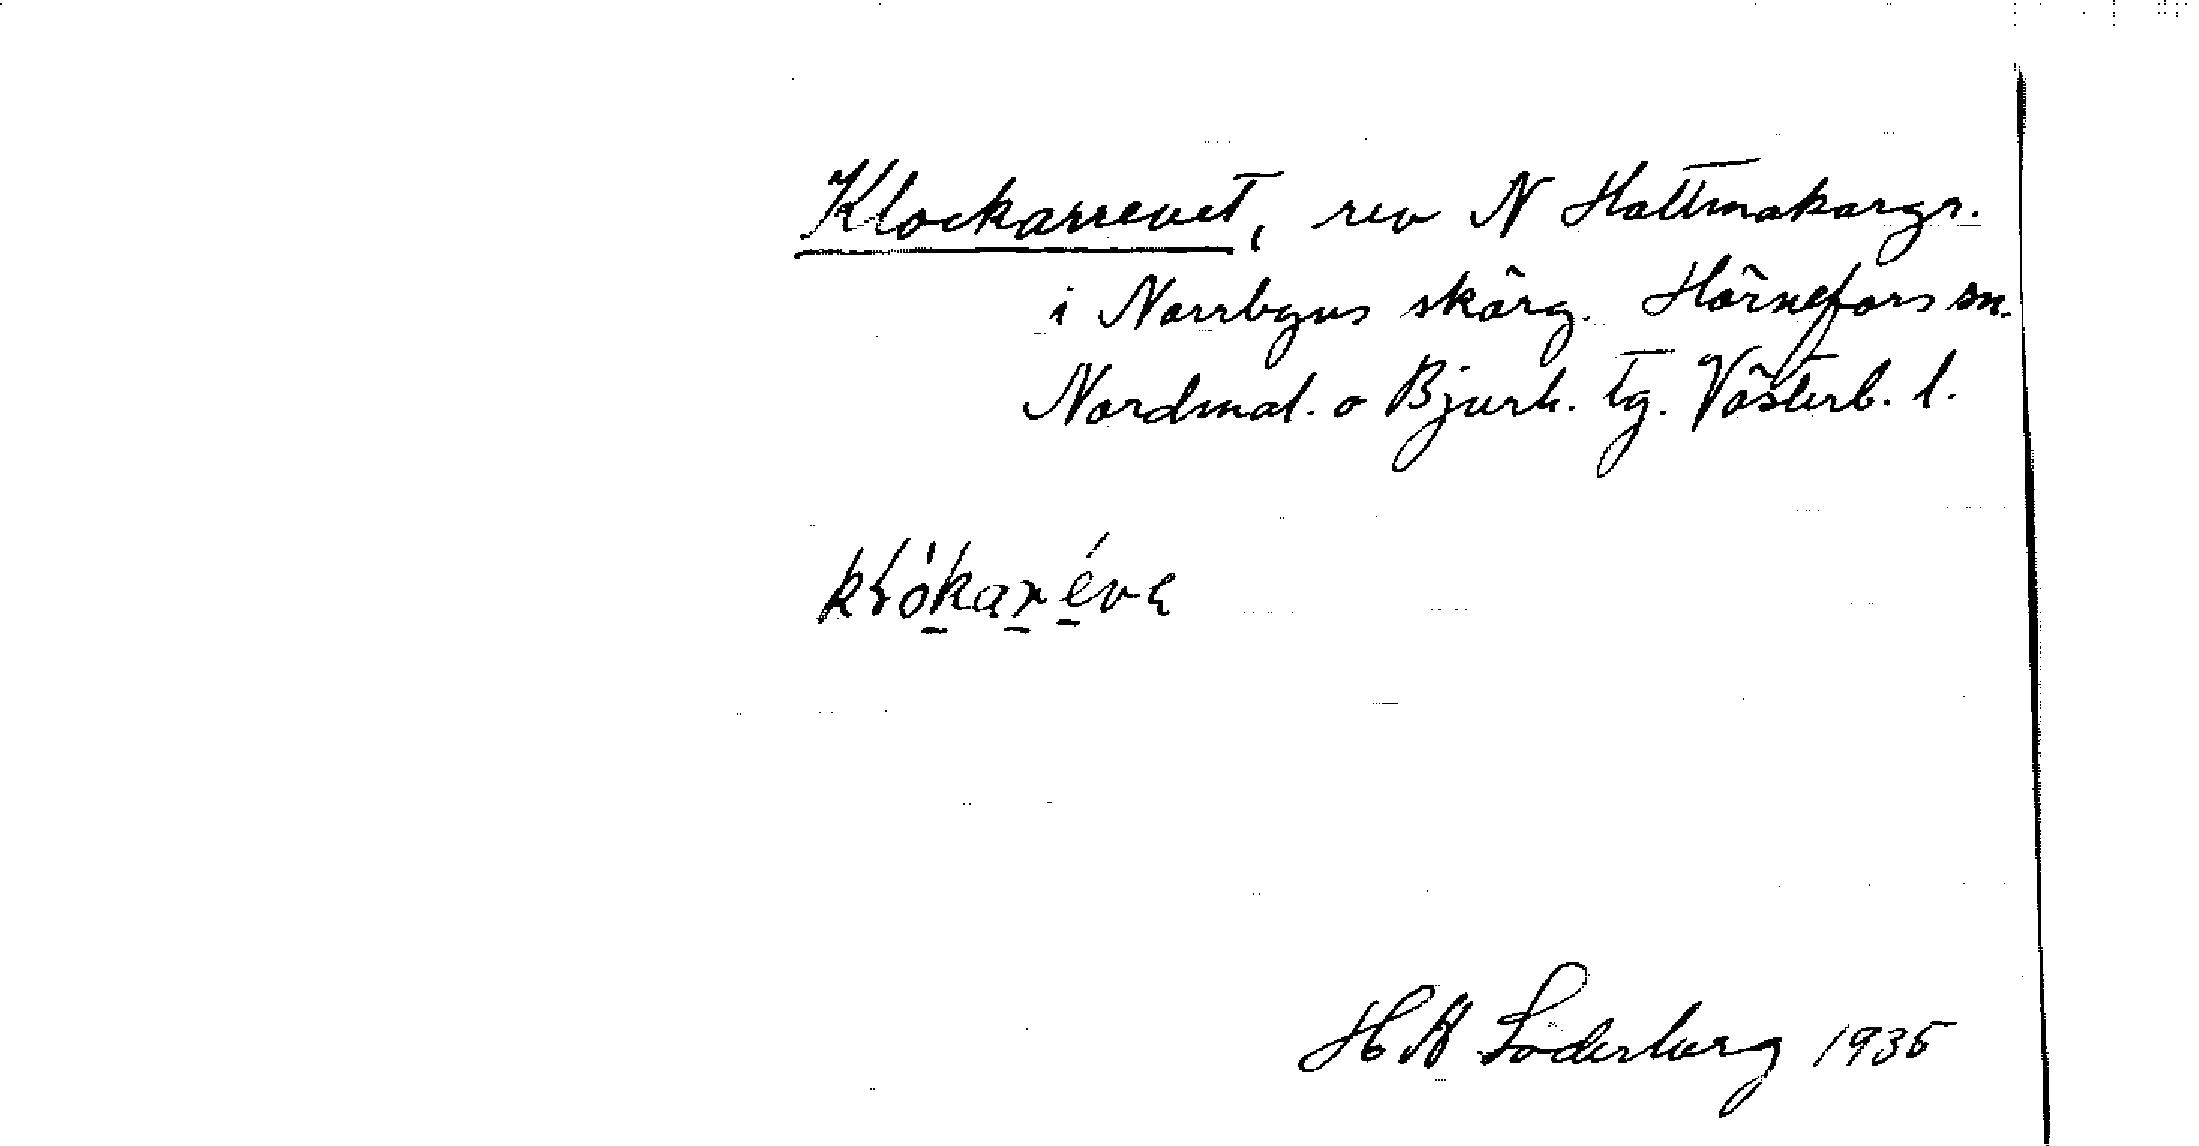 Klockarrevet, rev N Hattmakargr.
i Norrbyns skärg. Hörnefors sn.
Nordmal. o Bjurh. tg. Västerb. l.
H A Söderberg 1935